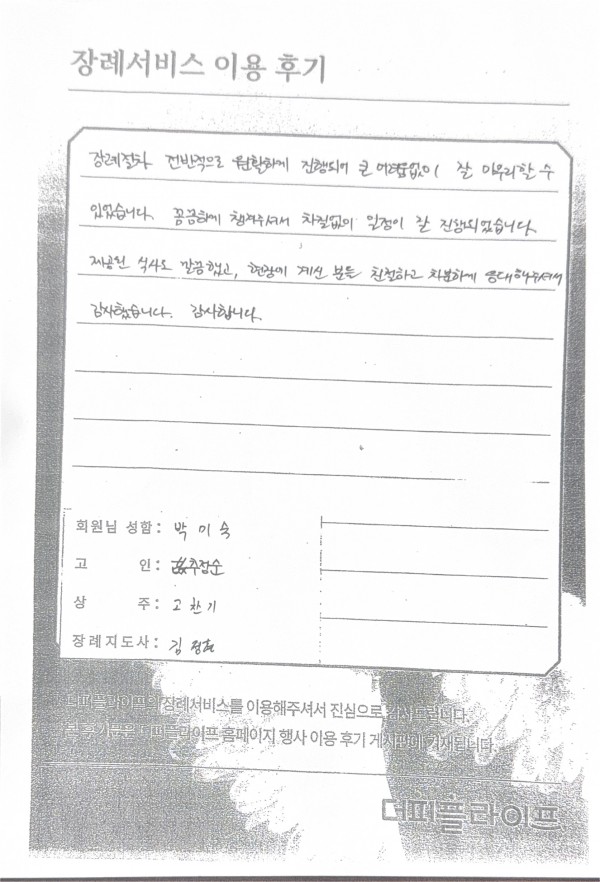 장례서비스 이용 후기
장례절차 전반적으로 원활하게 진행되어 큰 어려움없이 잘 마무리할 수
있었습니다. 꼼꼼하게 챙겨주셔서 차질없이 일정이 잘 진행되었습니다.
제공된 식사도 깔끔했고, 현장에 계신 분들 친절하고 차분하게 응대해주셔서
감사했습니다. 감사합니다.
회원님 성함: 박이숙
고 인: 故추정순
상 주: 고찬기
장례지도사: 김
더피플라이프의 장례서비스를 이용해주셔서 진심으로 감사드립니다.
본 후기물은 더피플라이프 홈페이지 행사 이용 후기 게시판에 기재됩니다.
더피플라이프